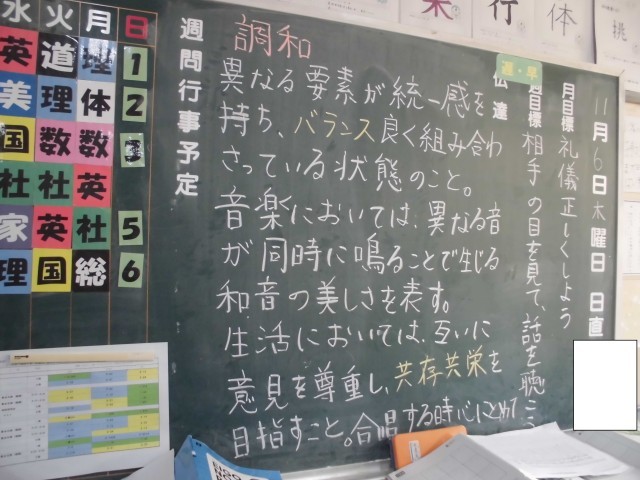 水 火 月 日
英 道 理 1
美 理 体 2
国 数 数
社 社 英
家 英 社 5
理 国 総 6
週間行事予定
調和
異なる要素が統一感を
持ち、バランス良く組み合わ
さっている状態のこと。
音楽においては、異なる音
が同時に鳴ることで生じる
和音の美しさを表す。
生活においては、互いに
意見を尊重し、共存共栄を
目指すこと。合唱する時心にとめて
遅・早
伝達
週目標 相手の目を見て、話を聴こう
月目標 礼儀正しくしよう
11月6日木曜日 日直
行
体
挑